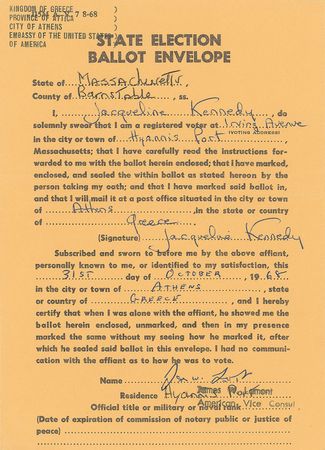 KINGDOM OF GREECE )
PROVINCE OF ATTICA )
CITY OF ATHENS )
EMBASSY OF THE UNITED STATES )
OF AMERICA )
STATE ELECTION
BALLOT ENVELOPE
State of Massachusetts,
County of Barnstable, ss.
I, Jacqueline Kennedy, do
solemnly swear that I am a registered voter at Irving Avenue
(VOTING ADDRESS)
in the city or town of Hyannis Port,
Massachusetts; that I have carefully read the instructions for-
warded to me with the ballot herein enclosed; that I have marked,
enclosed, and sealed the within ballot as stated hereon by the
person taking my oath; and that I have marked said ballot in,
and that I will mail it at a post office situated in the city or town
of Athens, in the state or country
of Greece
(Signature) Jacqueline Kennedy
Subscribed and sworn to before me by the above affiant,
personally known to me, or identified to my satisfaction, this
31ST day of OCTOBER, 1968
in the city or town of ATHENS, state
or country of GREECE, and I hereby
certify that when I was alone with the affiant, he showed me the
ballot herein enclosed, unmarked, and then in my presence
marked the same without my seeing how he marked it, after
which he sealed said ballot in this envelope. I had no communi-
cation with the affiant as to how he was to vote.
Name
Residence Hyannis Port
James D. Lamont
American Vice Consul
Official title or military or naval rank
(Date of expiration of commission of notary public or justice of
peace)